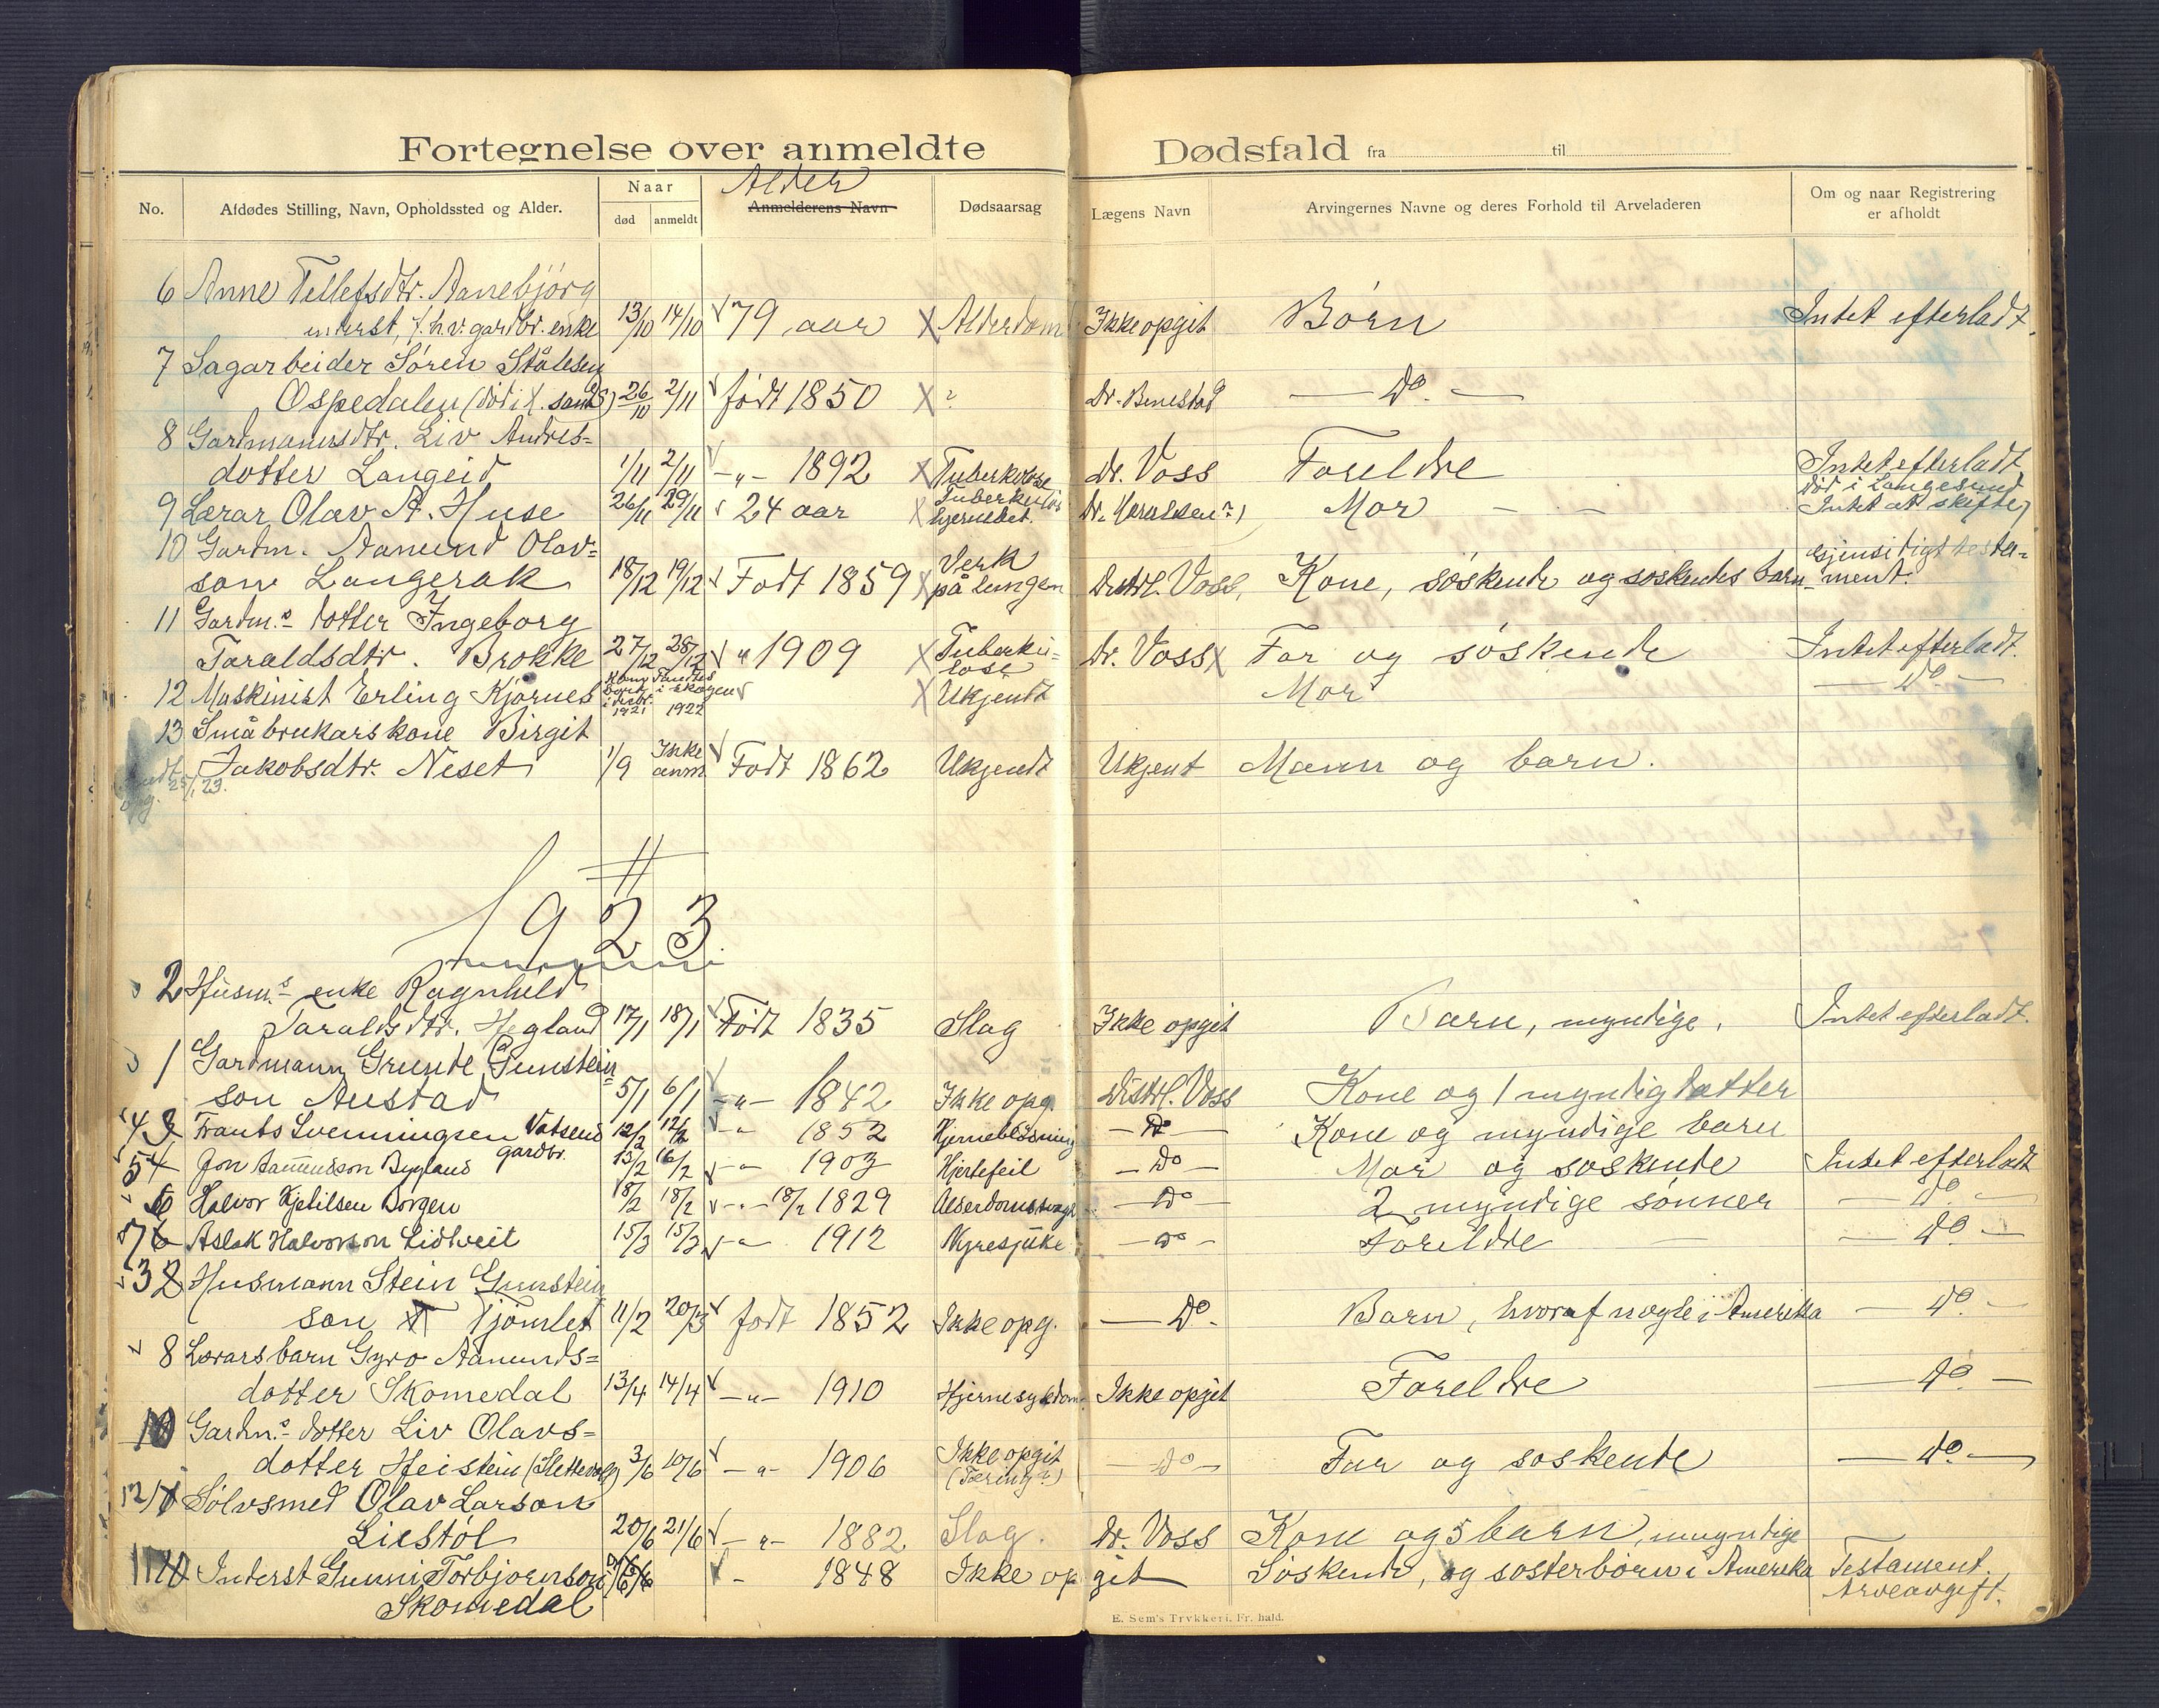 Fortegnelse over anmeldte Dødsfald fra til
No. Afdødes Stilling, Navn, Opholdssted og Alder. Naar død anmeldt Alder Anmelderens Navn Dødsaarsag Lægens Navn Arvingernes Navne og deres Forhold til Arveladeren Om og naar Registrering er afholdt
6 Anne Tellefsdtr. Aanebjörg
inderst, f.h.v. gardbr. enke 13/10 14/10 79 aar Alderdom Ikke opgit Börn Intet efterladt.
7 Sagarbeider Sören Stålesen
Ospedalen (död i K. sand S) 26/10 2/11 födt 1850 ? Dr. Benestad Do.
8 Gardmannsdtr. Liv Andres=
dotter Langeid 1/11 2/11 -"- 1892 Tuberkulose Dr. Voss Foreldre Intet efterladt
9 Lærar Olav A. Huse 26/11 29/11 24 aar Tuberkuløs hjernebet. Mor död i Langesund Intet at skifte
10 Gardm. Aamund Olav=
son Langerak 18/12 19/12 Födt 1859 Verk på lungen Distrl. Voss, Kone, söskende og söskendes barn Gjensidigt testament.
11 Gardm.s dotter Ingeborg
Taraldsdtr. Brokke 27/12 28/12 " 1909 Tuberkulose Dr. Voss Far og söskende Intet efterladt.
12 Maskinist Erling Kjörnes 1921 1922 Ukjendt Mor Do
13 Småbrukarskone Birgit
Jakobsdtr. Neset 1/9 Ikke anm. Födt 1862 Ukjendt Ukjent Mann og barn.
1923
2 Husm.s enke Ragnhild
Taraldsdtr. Hegland 17/1 18/1 Födt 1835 Slag Ikke opgit Barn, myndige. Intet efterladt.
1 Gardmann Grunde Gunstein=
son Austad 5/1 6/1 -"- 1842 Ikke opg. Distrl. Voss Kone og 1 myndig datter
4 3 Frants Svenningsen Vatsend gardbr. 12/2 12/2 -"- 1852 Hjerneblödning Do Kone og myndige barn
5 4 Jon Aamundson Bygland 15/2 16/2 -"- 1903 Hjertefeil Do Mor og söskende Intet efterladt
6 Halvor Kjetilsen Borgen 18/2 18/2 -"- 18/2 1829 Alderdomssvagh Do 2 myndige sönner Do
7 6 Aslak Halvorson Lidtveit 15/3 15/3 -"- 1912 Nyresjuke Do Foreldre Do
3 2 Husmann Stein Gunstein
son Tjomlet 11/2 20/3 födt 1852 Ikke opg. Do. Barn, hvoraf nogle i Amerika Do.
8 Lærarsbarn Gyro Aamunds=
dotter Skomedal 13/4 14/4 -"- 1910 Hjernesygdom Ikke opgit Foreldre Do.
10 Gardm.s dotter Liv Olavs=
dotter Heistein (Slettedal) 3/6 10/6 -"- 1906 Ikke opgit (Tæring?) Do Far og söskende Do.
12 Sölvsmed Olav Larson
Liestöl 20/6 21/6 -"- 1882 Slag. Dr. Voss Kone og 5 barn, umyndige
11 10 Inderst Gunni Torbjornson
Skomedal 1848 Ikke opgit Söskende, og sösterbörn i Amerika Testament. Arveavgift.
E. Sem's Trykkeri, Fr. hald.